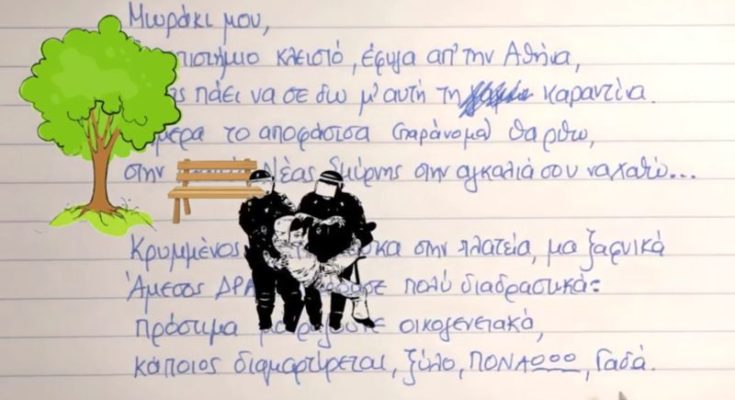 Μωράκι μου,
πιστήμιο κλειστό, έφυγα απ' την Αθήνα,
πάει να σε δω μ' αυτή τη καραντίνα.
μερα το αποφάσισα (παράνομα) θα ρθω,
στην Νέας Σμύρνης στην αγκαλιά σου να χαθώ...
Κρυμμένος στην πλατεία, μα ξαφνικά
Άμεσος ΔΡΑ πολύ διαδραστικά:
πρόστιμα οικογενειακά,
κάποιος διαμαρτύρεται, ξύλο, ΠΟΝΑΩΩΩ, Γαδά.